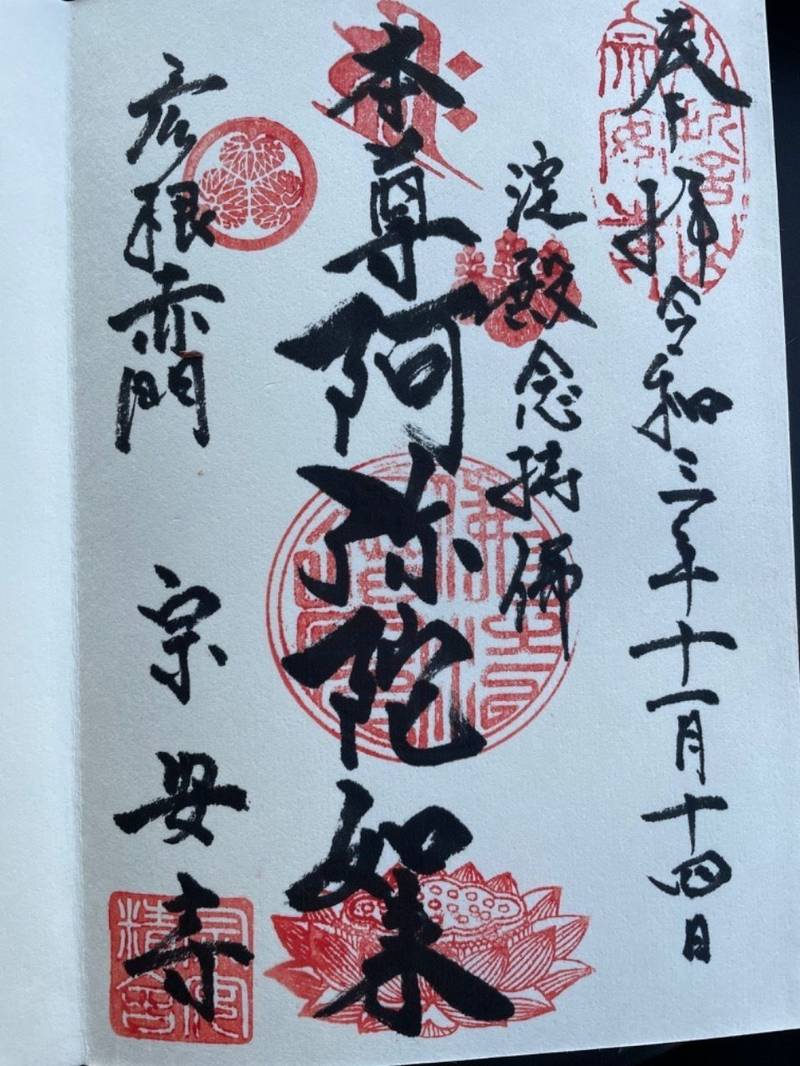 奉拝 令和三年十一月十四日
淀殿念持佛
本尊阿弥陀如来
彦根赤門
宗安寺